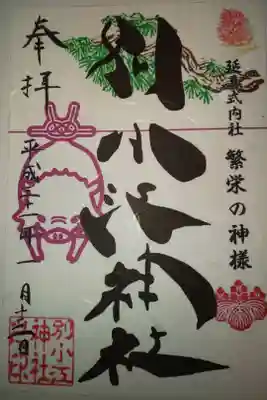 延喜式内社 繁栄の神様
別小江神社
奉拝
平成三十一年一
別小江
神社